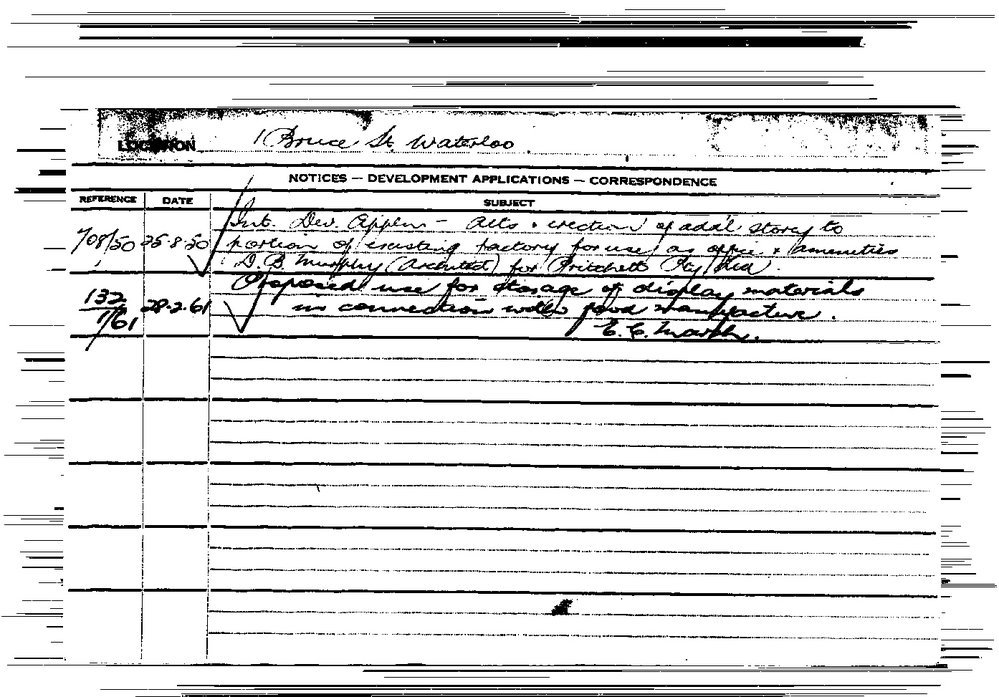 LOCATION 1 Bruce St. Waterloo.
NOTICES — DEVELOPMENT APPLICATIONS — CORRESPONDENCE
REFERENCE DATE SUBJECT
Int. Dev. Applcn — alts & erection of addl storey to
708/50 25-8-50 portion of existing factory for use as office & amenities
D. B. Murphy (Architect) for Pritchett Pty Ltd.
Proposed use for storage of display materials
132 28-2-61 in connection with food manufacture.
1/61 E. C. Marsh.